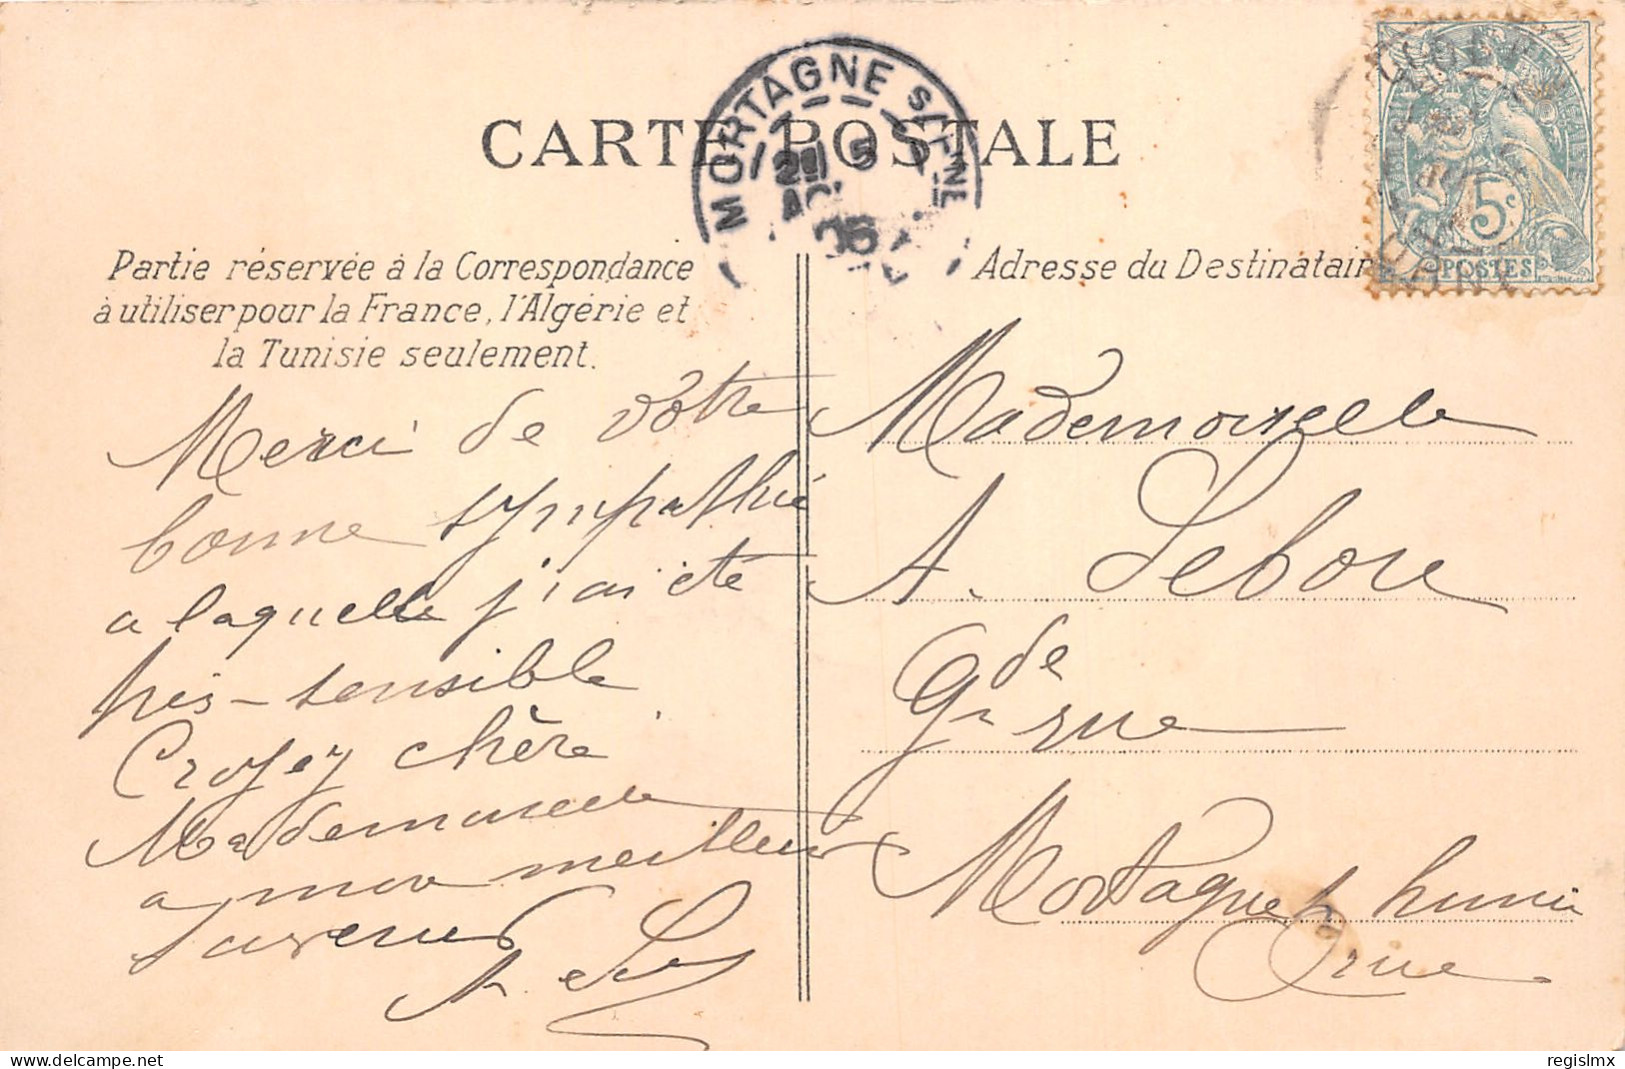 CARTE POSTALE
MORTAGNE S/
5
06
5c
POSTES
Partie réservée à la Correspondance
à utiliser pour la France, l'Algérie et
la Tunisie seulement.
Adresse du Destinataire
Merci de votre
bonne sympathie
a laquelle j'ai été
très-sensible
Croyez chère
Mademoiselle
a mon meilleur
souvenir
Mademoiselle
A. Lebore
Gde rue
Mortagne
Orne
delcampe.net
regislmx